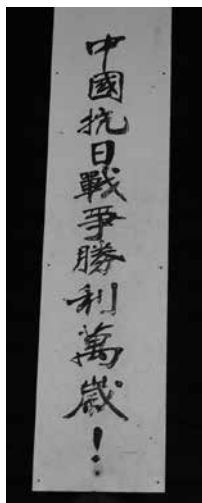 中國抗日戰爭勝利萬歲！